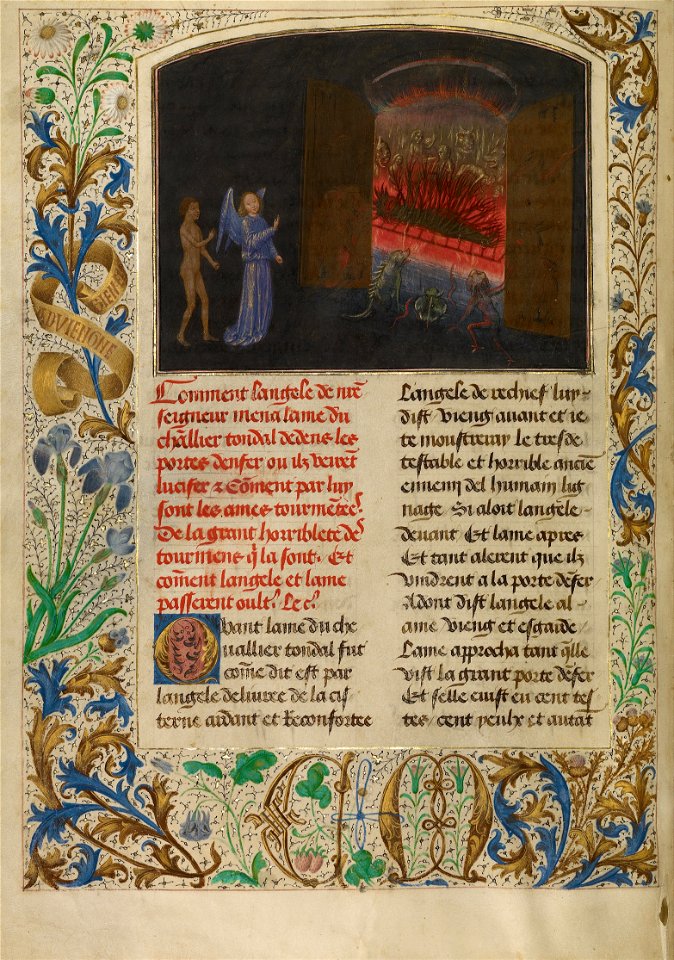 BIEN
ADVIENGNE
Comment langele de nr̄e
seigneur mena lame du
chūllier tondal dedens les
portes denfer ou ilz veirēt
lucifer & Cōment par luy
sont les ames tourmētees
De la grant horriblete des
tourmens q̄ la sont. Et
cōment langele et lame
passerent oult.
Quant lame du che
uallier tondal fut
cōme dit est par
langele deliuree de la cis
terne ardant et Reconfortee
Langele de rechief luy
dist Vieng auant et ie
te monstreray le tresde
testable et horrible anciē
ennemy del humain lig
nage Si aloit langele
deuant Et lame apres
Et tant alerent que ilz
vindrent a la porte dēfer
Adont dist langele al
ame Vieng et esgarde
Lame approcha tant q̄lle
vist la grant porte dēfer
Et selle euist eu cent tes
tes / cent yeulx et autāt
C M